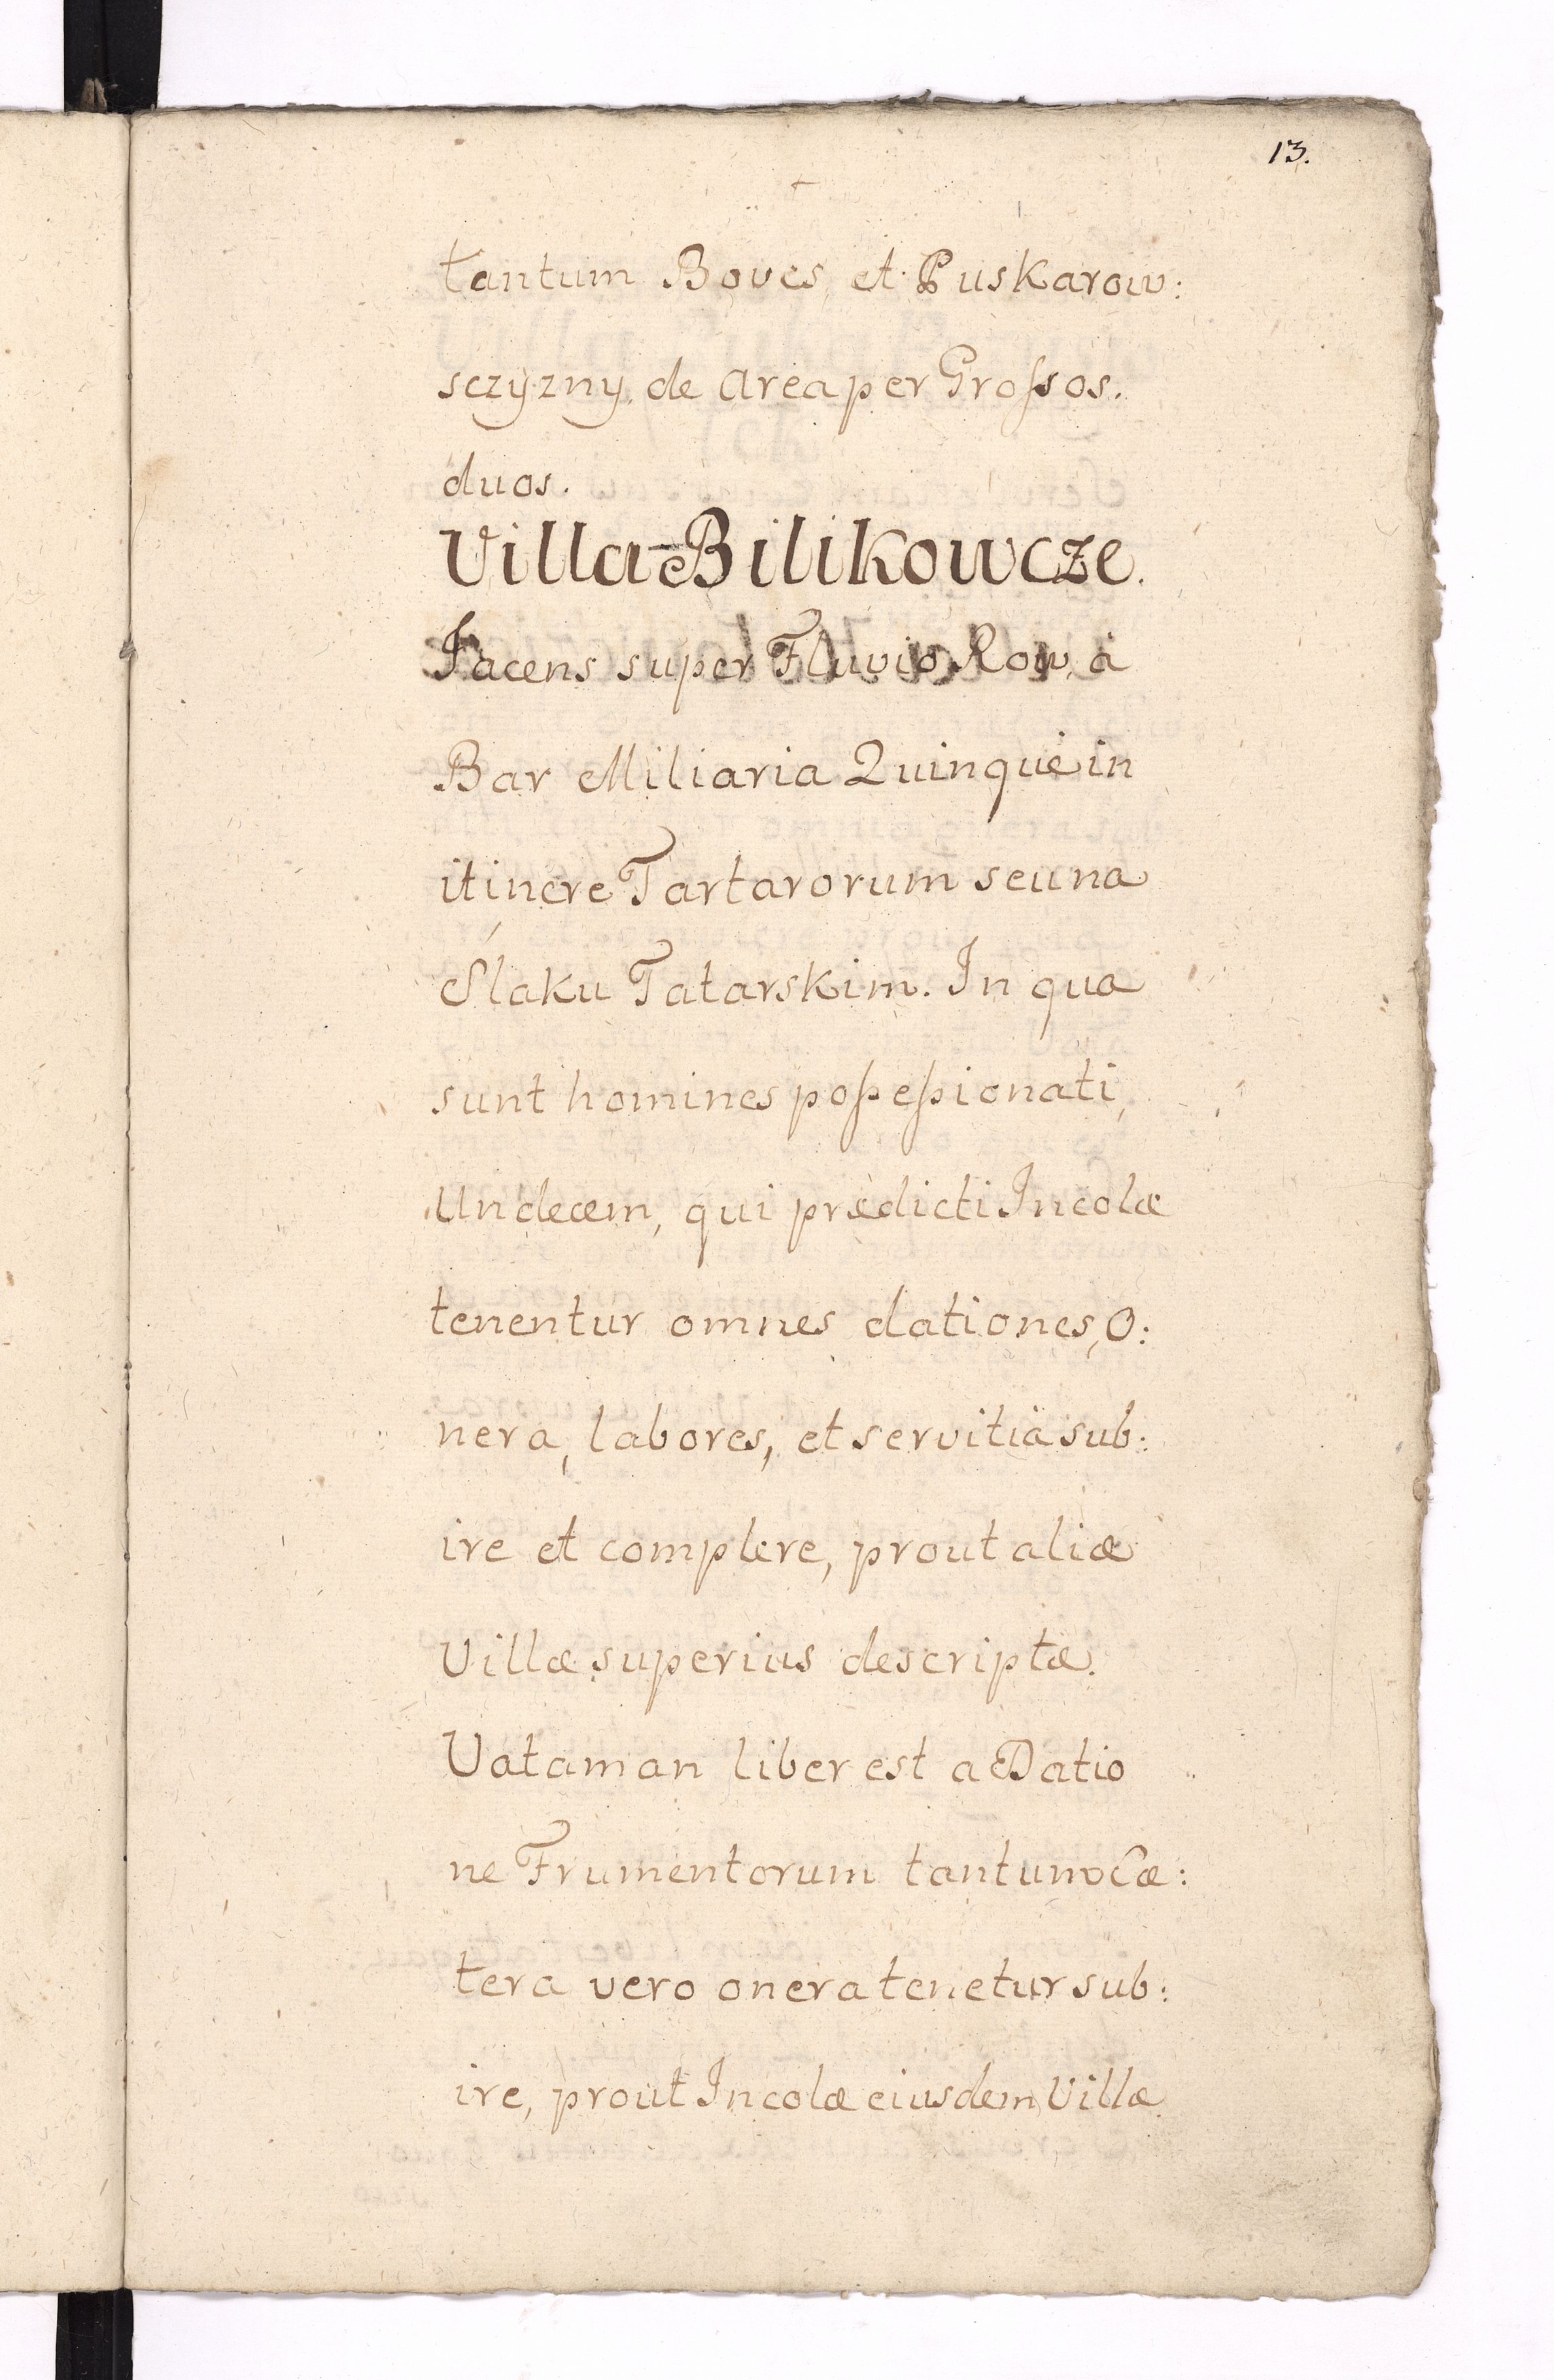 13.
tantum Boves et Puskarow:
sczyzny de Area per Grossos.
duos.
Villa Bilikowcze.
Jacens super Fluvio Row, a
Bar Miliaria Quinque in
itinere Tartarorum seu na
Slaku Tatarskim. In qua
sunt homines possessionati,
Undecem, qui prædicti Incolæ
tenentur omnes dationes, O:
nera, labores, et servitia sub:
ire et complere, prout aliæ
Villæ superius descriptæ.
Vataman liber est a Datio
ne Frumentorum tantum Cæ:
tera vero onera tenetur sub:
ire, prout Incolæ eiusdem Villæ